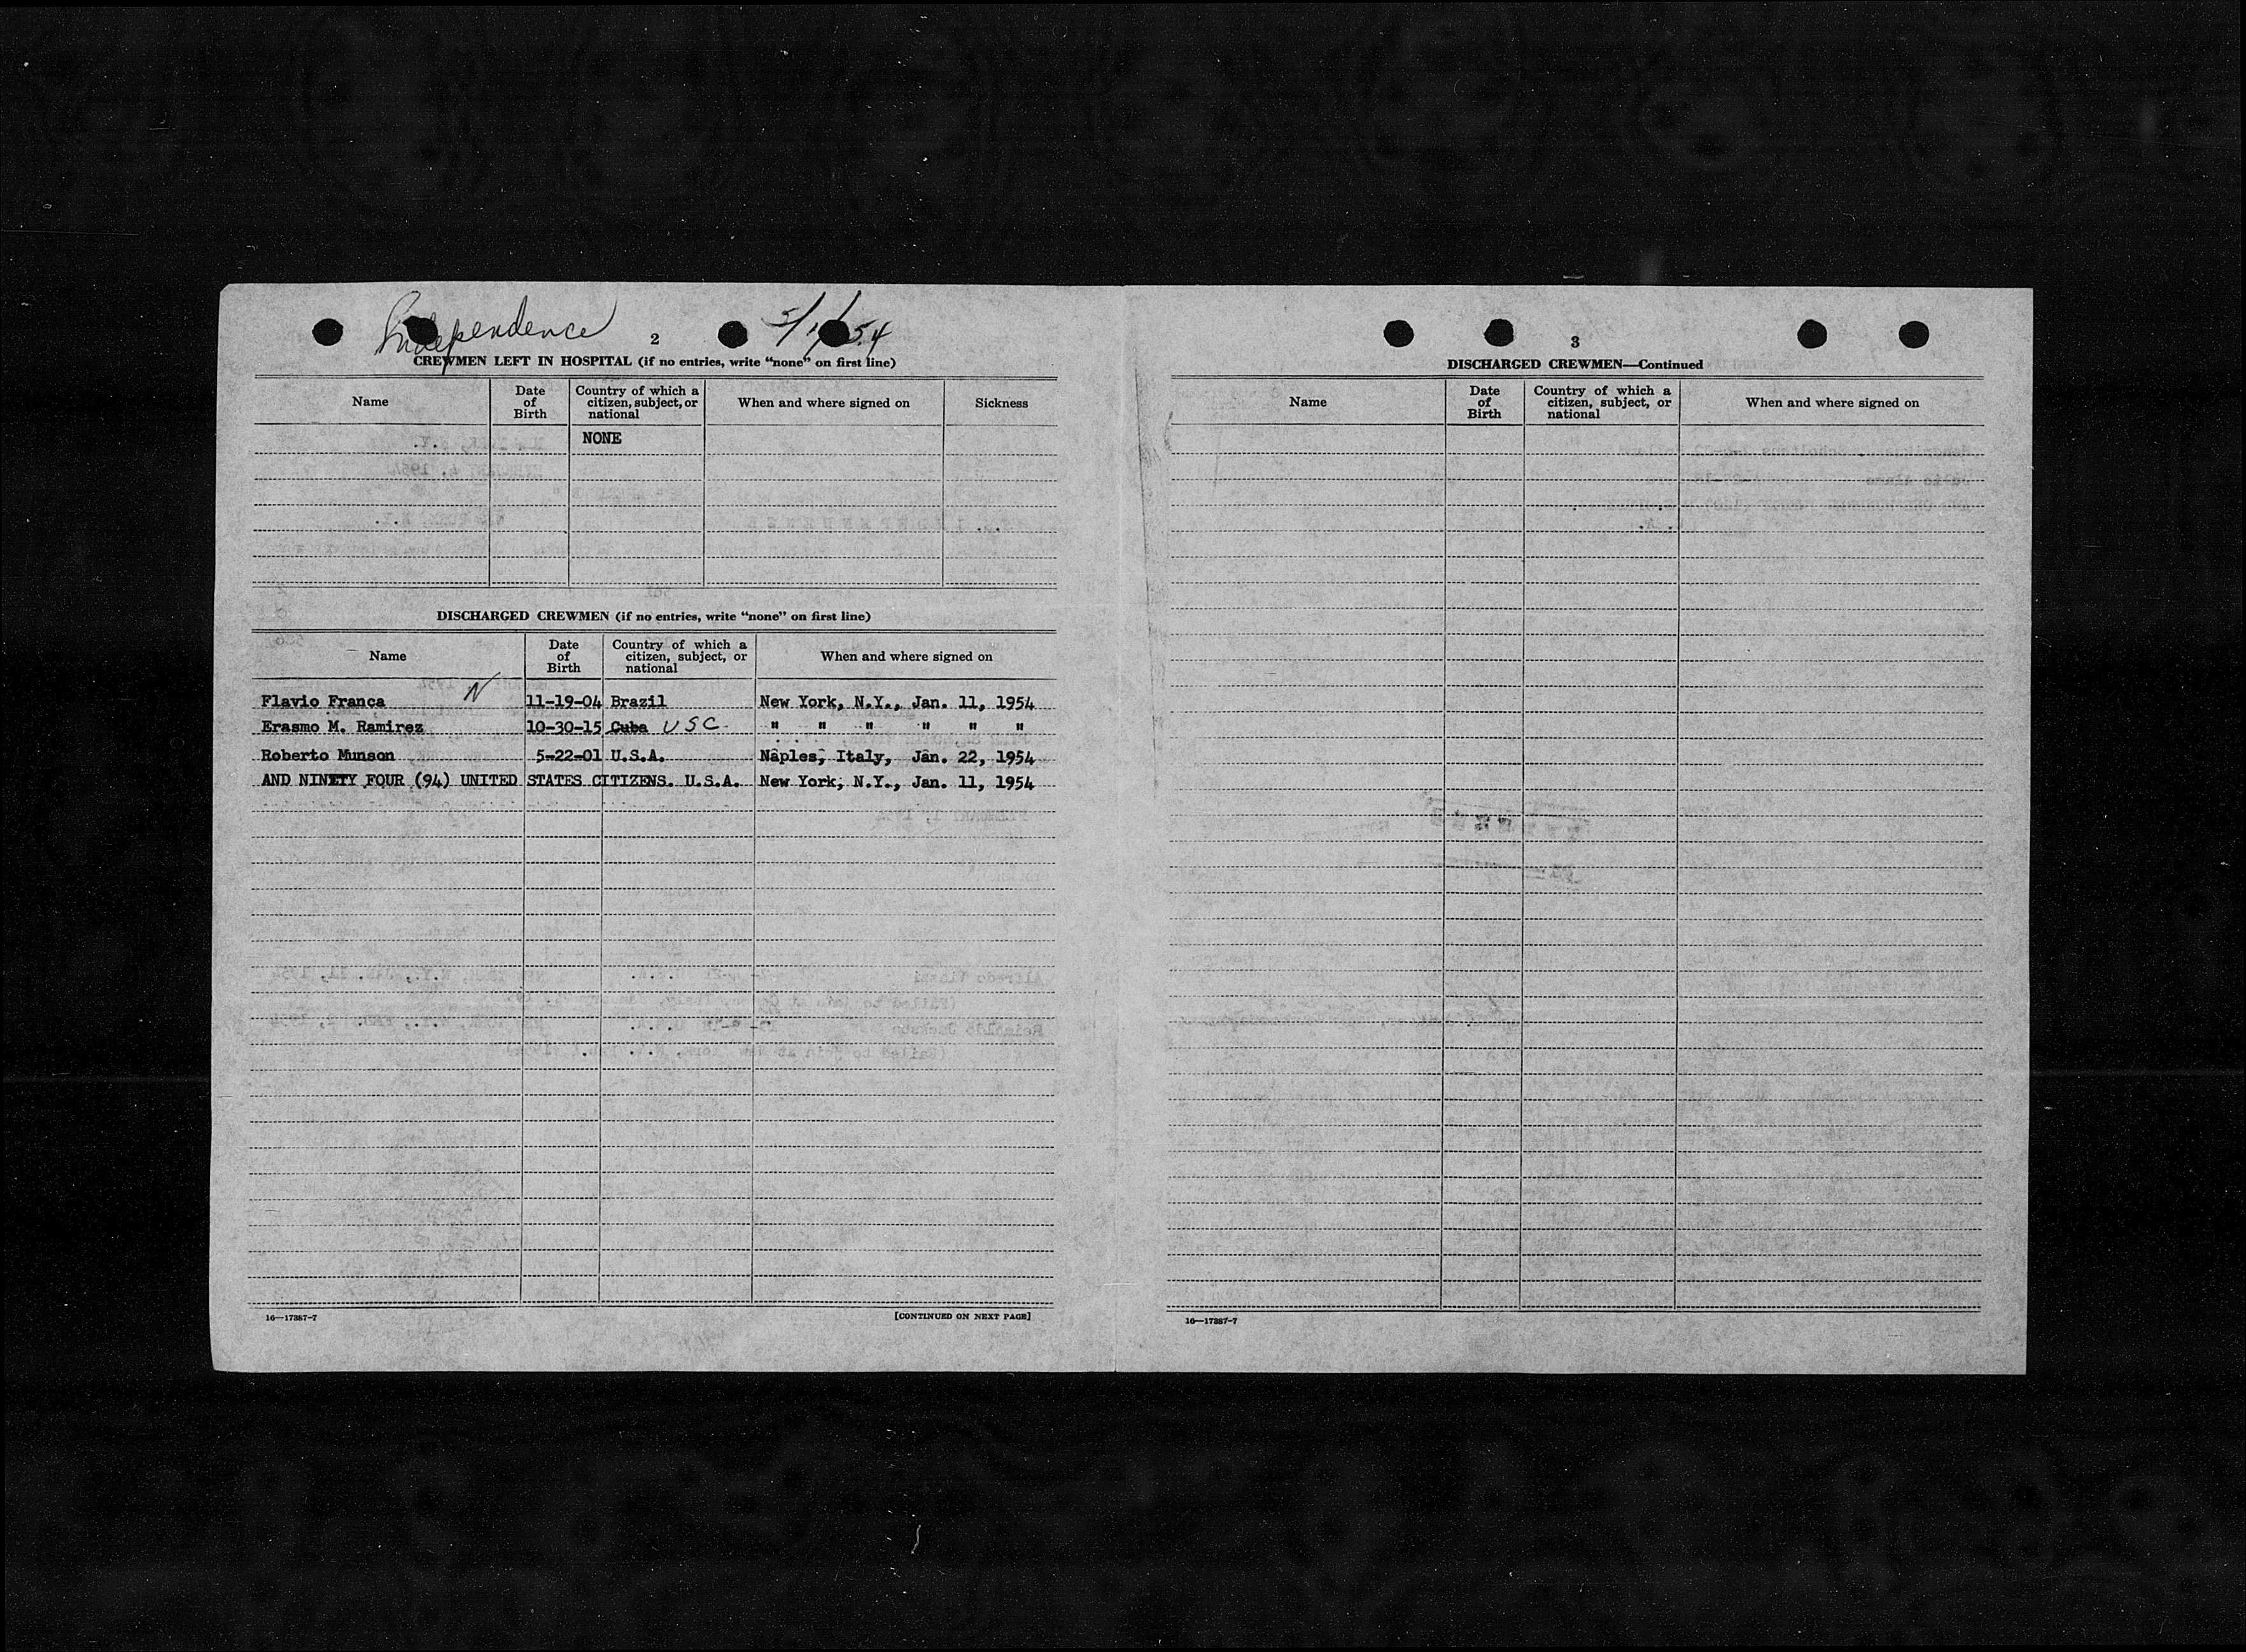 Independence
2
CREWMEN LEFT IN HOSPITAL (if no entries, write "none" on first line)
Name
Date of Birth
Country of which a citizen, subject, or national
When and where signed on
Sickness
NONE
DISCHARGED CREWMEN (if no entries, write "none" on first line)
Name
Date of Birth
Country of which a citizen, subject, or national
When and where signed on
Flavio Franca N 11-19-04 Brazil New York, N.Y., Jan. 11, 1954
Erasmo M. Ramirez 10-30-15 Cuba USC " " " " " "
Roberto Munson 5-22-01 U.S.A. Naples, Italy, Jan. 22, 1954
AND NINETY FOUR (94) UNITED STATES CITIZENS. U.S.A. New York, N.Y., Jan. 11, 1954
16—17387-7
[CONTINUED ON NEXT PAGE]
3
DISCHARGED CREWMEN—Continued
Name
Date of Birth
Country of which a citizen, subject, or national
When and where signed on
16—17387-7